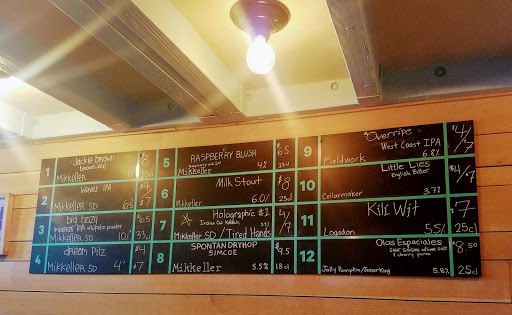 1
Jackie brown
brown ale
Mikkeller
$8
2
Waves IPA
Mikkeller SD
$4
6.5
7
3
big hazy
imperial IPA w/lupulin powder
Mikkeller SD
10%
$6.5
33cl
4
dream Pilz
Mikkeller SD
4%
$4
$7
5
RASPBERRY BLUSH
Mikkeller
4.5
6.5
33cl
6
Milk Stout
Mikkeller
6.0%
$8
25cl
7
Holographic #1
Mikkeller SD / Tired Hands
4/7
8
SPONTAN DRYHOP
SIMCOE
Mikkeller
5.5%
$9.5
18cl
9
Overripe
West Coast IPA
Fieldwork
6.8%
$4/7
10
Little Lies
English Bitter
Cellarmaker
3.7%
$4/7
11
Kili Wit
Logsdon
5.5%
$7
25cl
12
Olas Espaciales
Jolly Pumpkin/Jester King
5.8%
$8.50
25cl